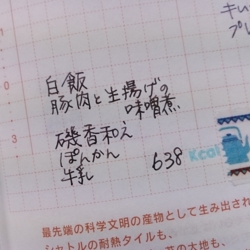 キい
プレ
白飯
豚肉と生揚げの
味噌煮
磯香和え
ぽんかん
牛乳
638
Kcal
最先端の科学文明の産物として生み出され
シャトルの耐熱タイルも、